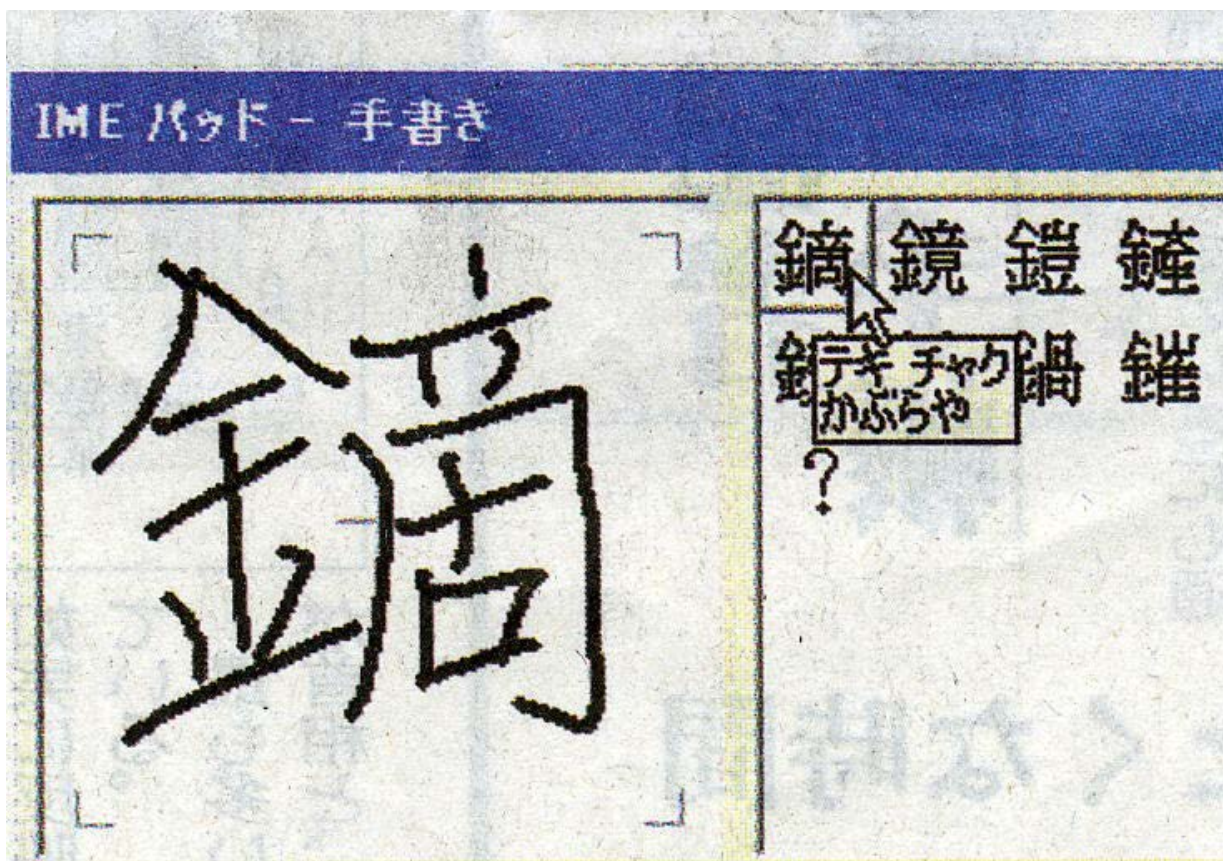 IME パッド - 手書き
鏑
鏑 鏡 鎧 鏟
鍋 鏙
テキ チャク
かぶらや
?